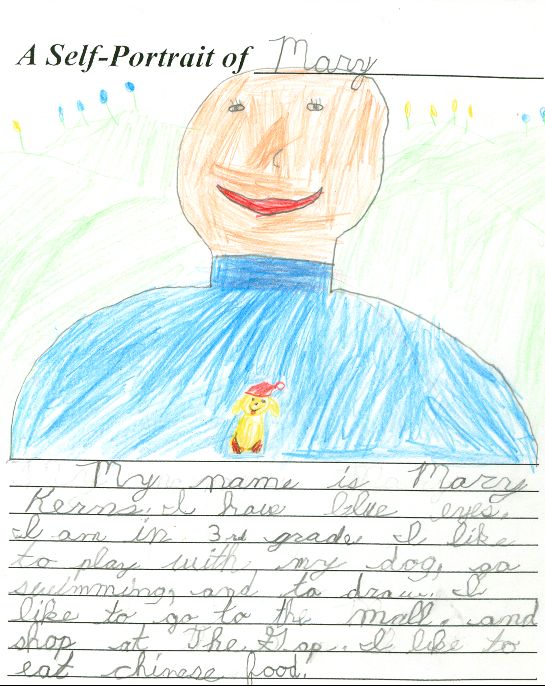 A Self-Portrait of Mary
My name is Mary
Kerns. I have blue eyes.
I am in 3rd grade. I like
to play with my dog, go
swimming, and to draw. I
like to go to the mall. and
shop at The Gap. I like to
eat chinese food.